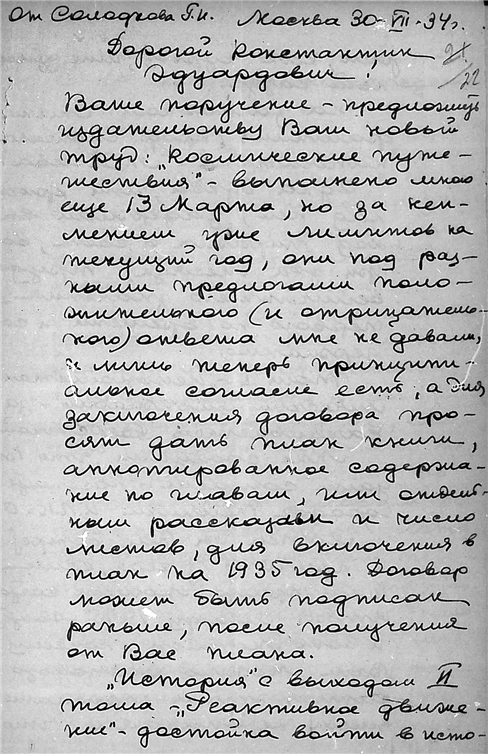 От Солодкова Г.И. Москва 30-VII-34г.
Дорогой Константин 21
Эдуардович! /22
Ваше поручение - предложить
издательству Ваш новый
труд: "Космические путе-
шествия" - выполнено мною
еще 13 Марта, но за неи-
мением уже лимитов на
текущий год, они под раз-
ными предлогами поло-
жительного (и отрицатель-
ного) ответа мне не давали,
и лишь теперь принципи-
альное согласие есть, а для
заключения договора про-
сят дать план книги,
аннотированное содержа-
ние по главам, или отдель-
ным рассказам и число
листов, для включения в
план на 1935 год. Договор
может быть подписан
раньше, после получения
от Вас плана.
"История" с выходом II
тома - "Реактивное движе-
ние" - достойна войти в исто-